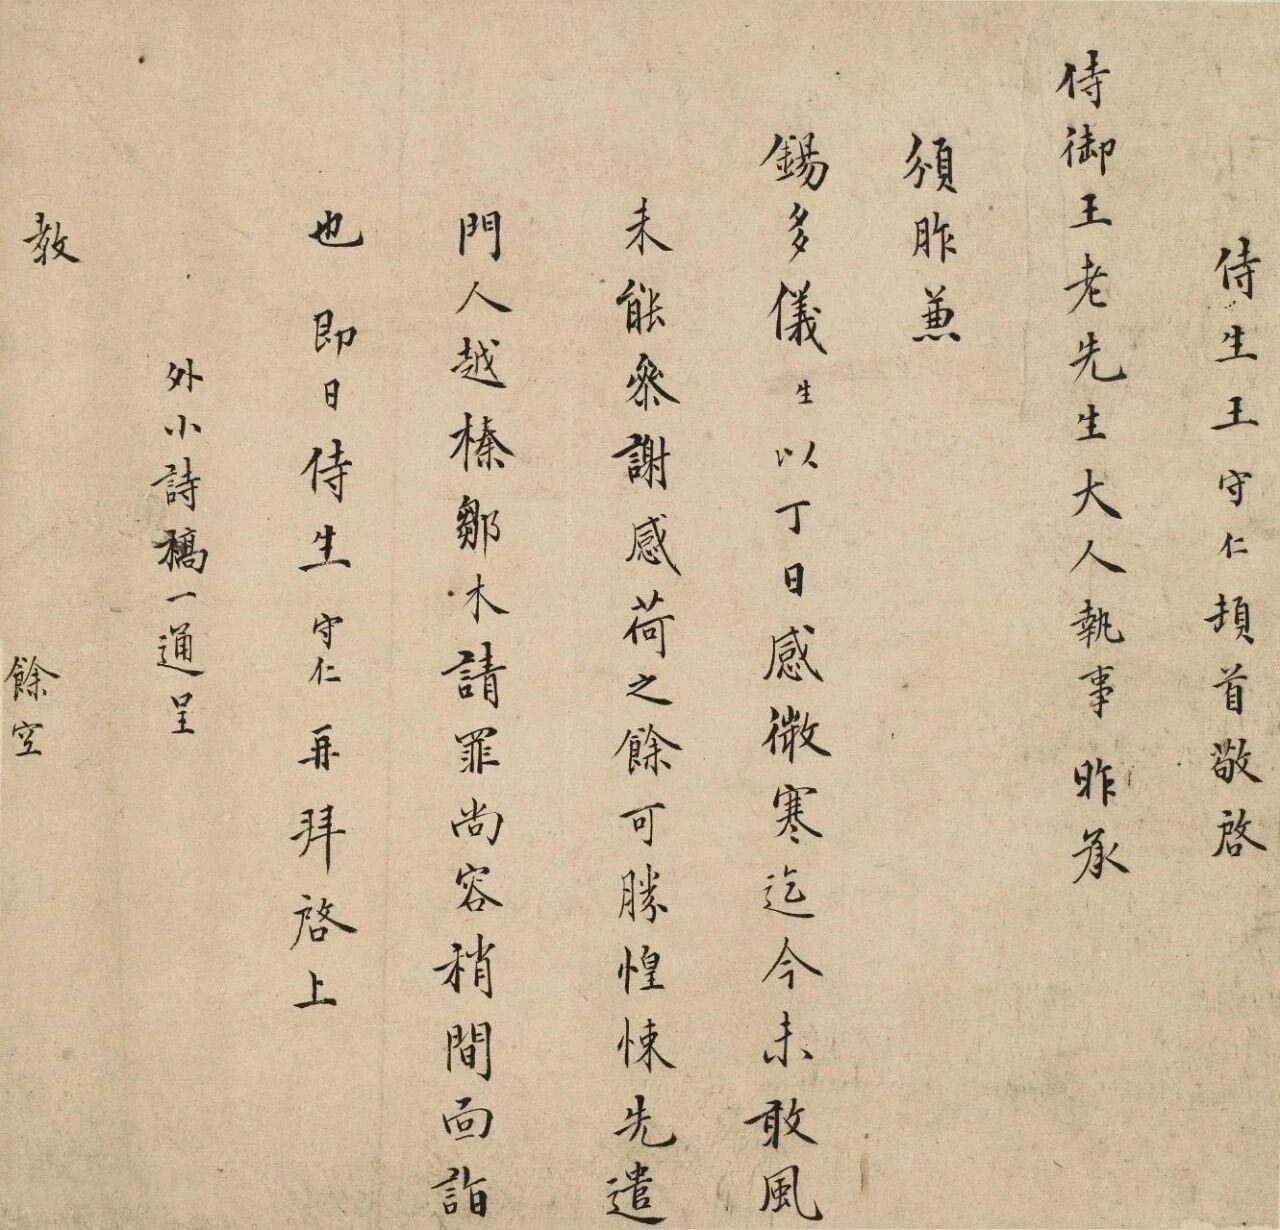 侍生王守仁頓首敬啓
侍御王老先生大人執事昨承
頒胙兼
錫多儀生以丁日感微寒迄今未敢風
未能叅謝感荷之餘可勝惶悚先遣
門人越榛鄒木請罪尚容稍間面詣
也 即日侍生守仁再拜啓上
外小詩稿一通呈
教 餘空